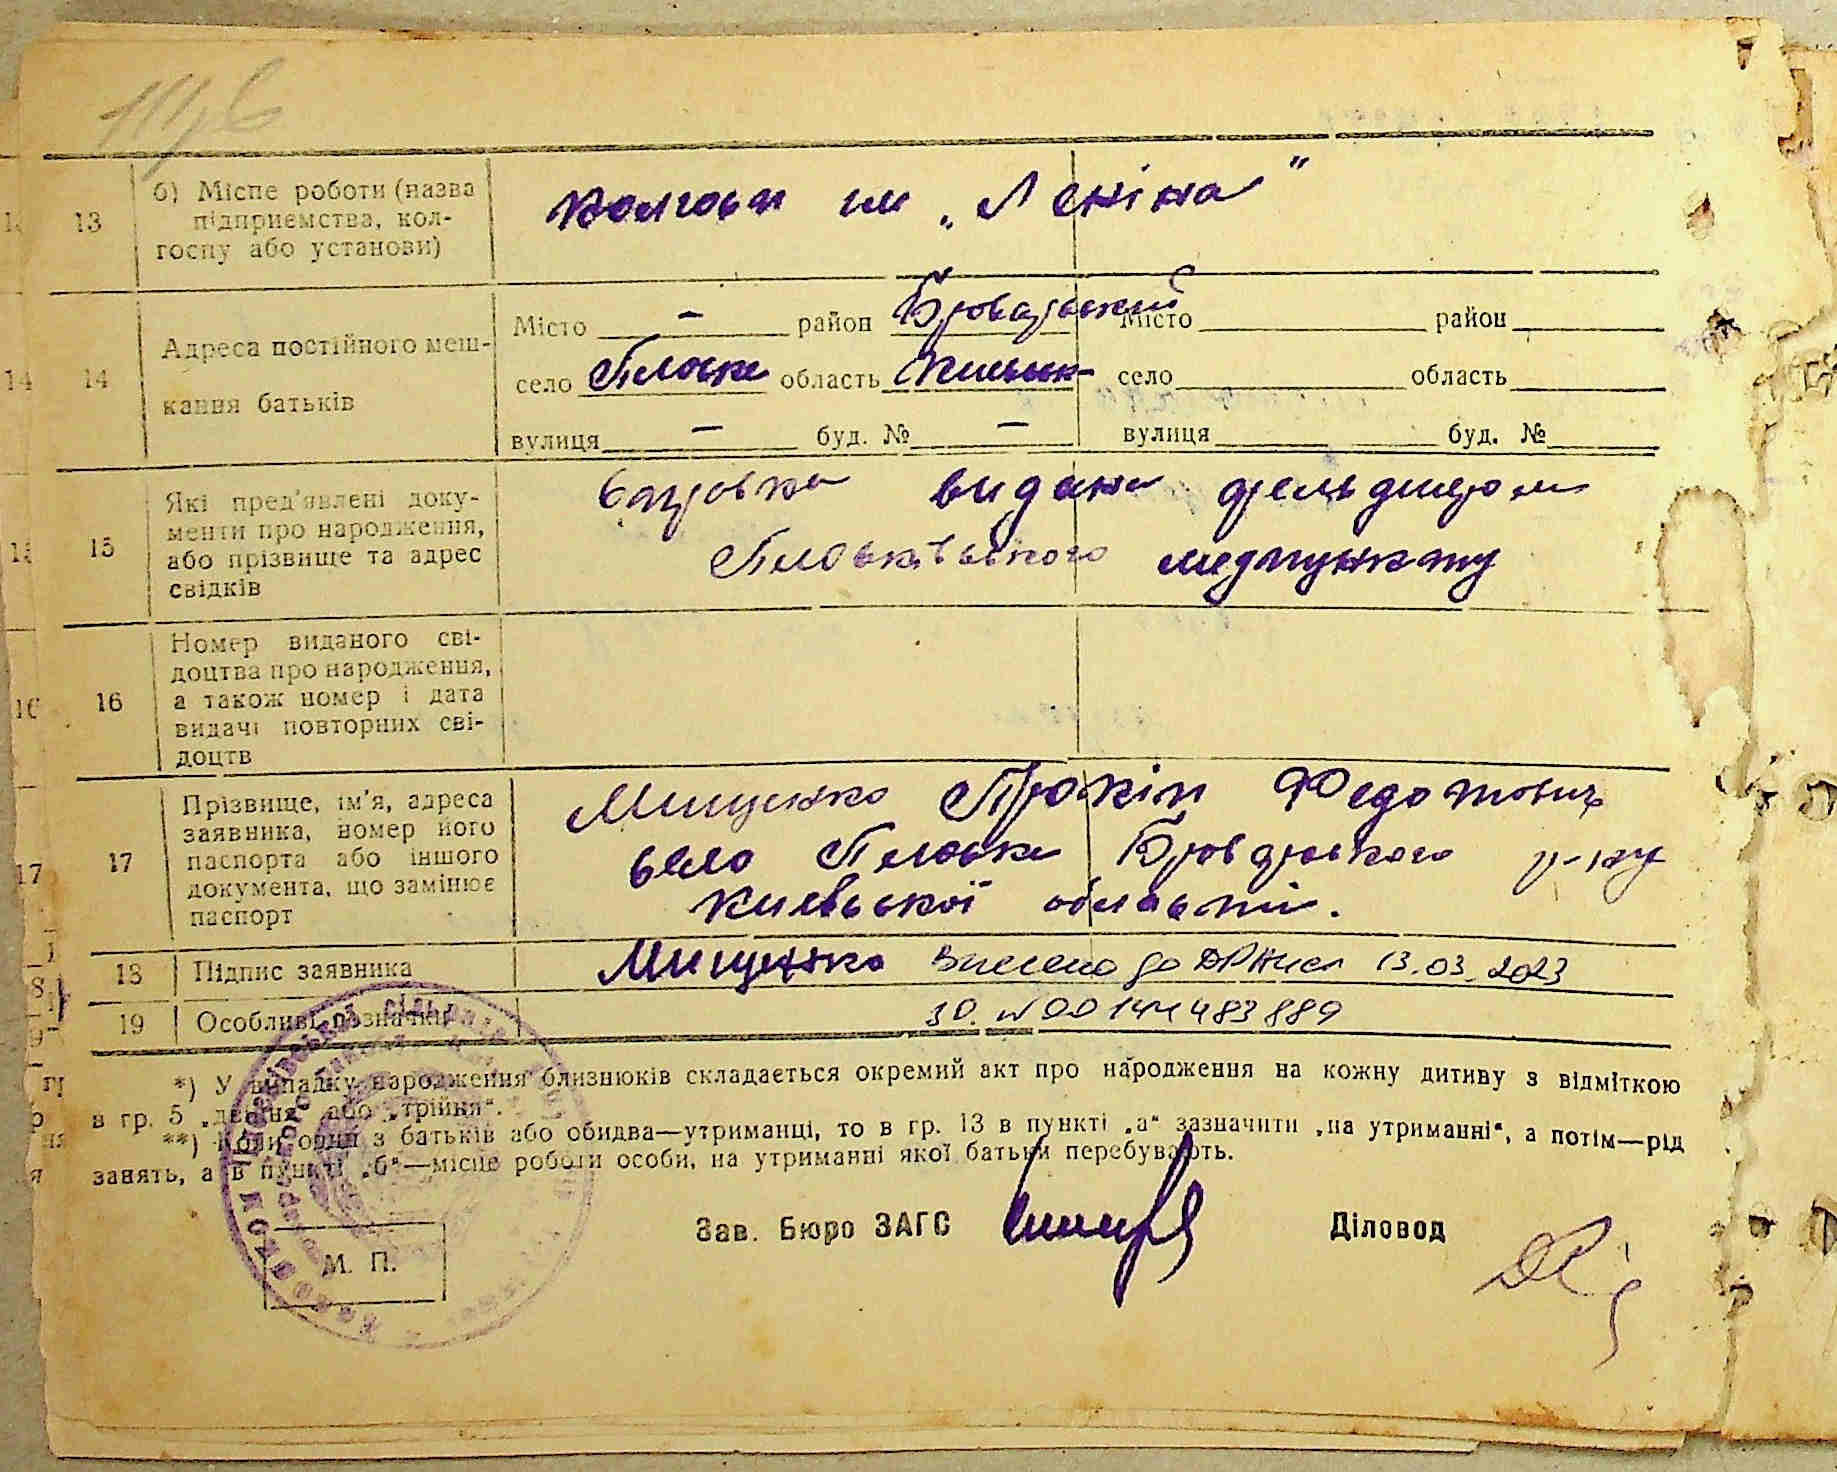 13
б) Місце роботи (назва
підприємства, кол-
госпу або установи)
колгосп ім „Леніна"
14
Адреса постійного меш-
кання батьків
Місто — район Броварський
село Плоске область Київськ-
вулиця — буд. № —
Місто район
село область
вулиця буд. №
15
Які пред'явлені доку-
менти про народження,
або прізвище та адрес
свідків
справка видана фельдшером
Плосківського медпункту
16
Номер виданого сві-
доцтва про народження,
а також номер і дата
видачі повторних сві-
доцтв
17
Прізвище, ім'я, адреса
заявника, номер його
паспорта або іншого
документа, що замінює
паспорт
Мищенко Прокіп Федотович
село Плоске Броварського р-ну
Київської області.
18
Підпис заявника
Мищенко Внесено до ДРАЦС 13.03.2023
19
Особливі позначки
*) У випадку народження близнюків складається окремий акт про народження на кожну дитину з відміткою
в гр. 5 „двійня" або „трійня".
**) Коли один з батьків або обидва—утриманці, то в гр. 13 в пункті „а" зазначити „на утриманні", а потім—рід
занять, а в пункті „б"—місце роботи особи, на утриманні якої батьки перебувають.
Зав. Бюро ЗАГС
Діловод
М. П.